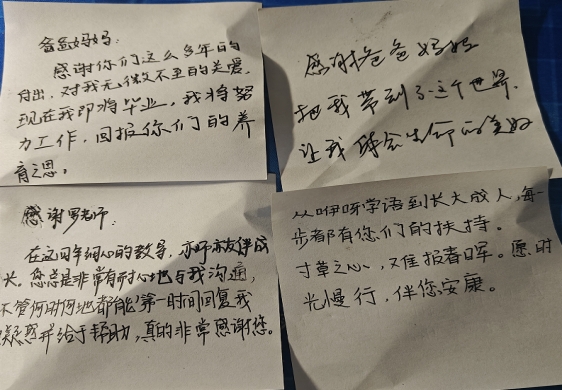 爸爸妈妈:
感谢你们这么多年的
付出，对我无微不至的关爱，
现在我即将毕业，我将努
力工作，回报你们的养
育之恩。
感谢爸爸妈妈
把我带到了这个世界，
让我体会生命的美好
感谢罗老师:
在这四年细心的教导，亦师亦友伴成
长。您总是非常有耐心地与我沟通，
不管何时何地都能第一时间回复我
疑惑并给于帮助，真的非常感谢您。
从咿呀学语到长大成人，每一
步都有您们的扶持。
寸草之心，难报春晖。愿时
光慢行，伴您安康。